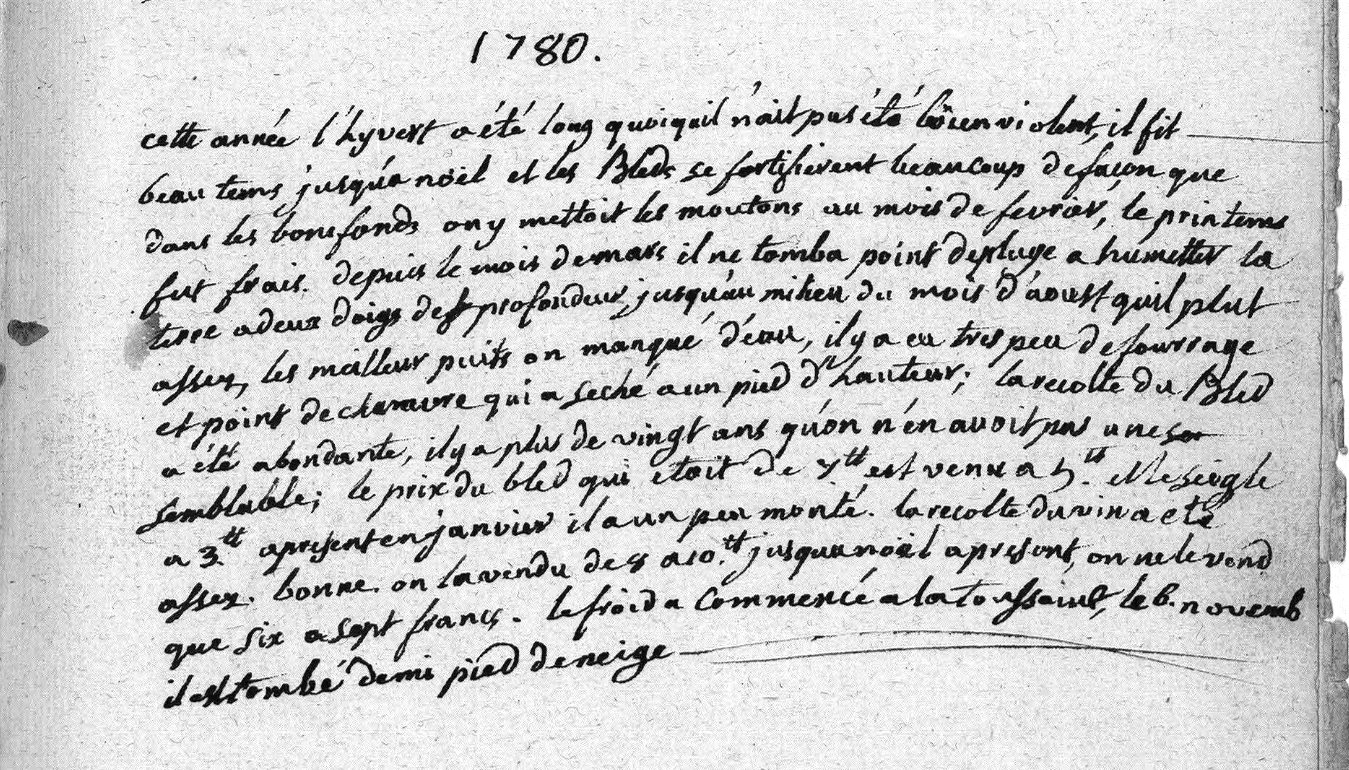 1780.
cette année l'hyvert a été long quoiquil n'ait pas été bien violent, il fit
beau tems jusqu'a noël et les Bleds se fortifierent beaucoup de façon que
dans les bons fonds on y mettoit les moutons au mois de fevrier, le printems
fut frais. depuis le mois de mars il ne tomba point de pluye a humetter la
terre a deux doigs de profondeur, jusqu'au milieu du mois d'aoust quil plut
assez, les meilleur puits on manqué d'eau, il y a eu tres peu de fourrage
et point de chanvre qui a seché a un pied d'hauteur; la recolte du Bled
a été abondante, il y a plus de vingt ans qu'on n'en avoit pas une
semblable; le prix du bled qui etoit de 7.tt est venu a 5.tt et le seigle
a 3.tt apresent en janvier il a un peu monté. la recolte du vin a eté
assez. bonne. on l'a vendu de 8 a 10.tt jusqua noël apresent, on ne le vend
que six a sept francs. le froid a commencé a la toussaint, le 6. novemb
il est tombé demi pied de neige